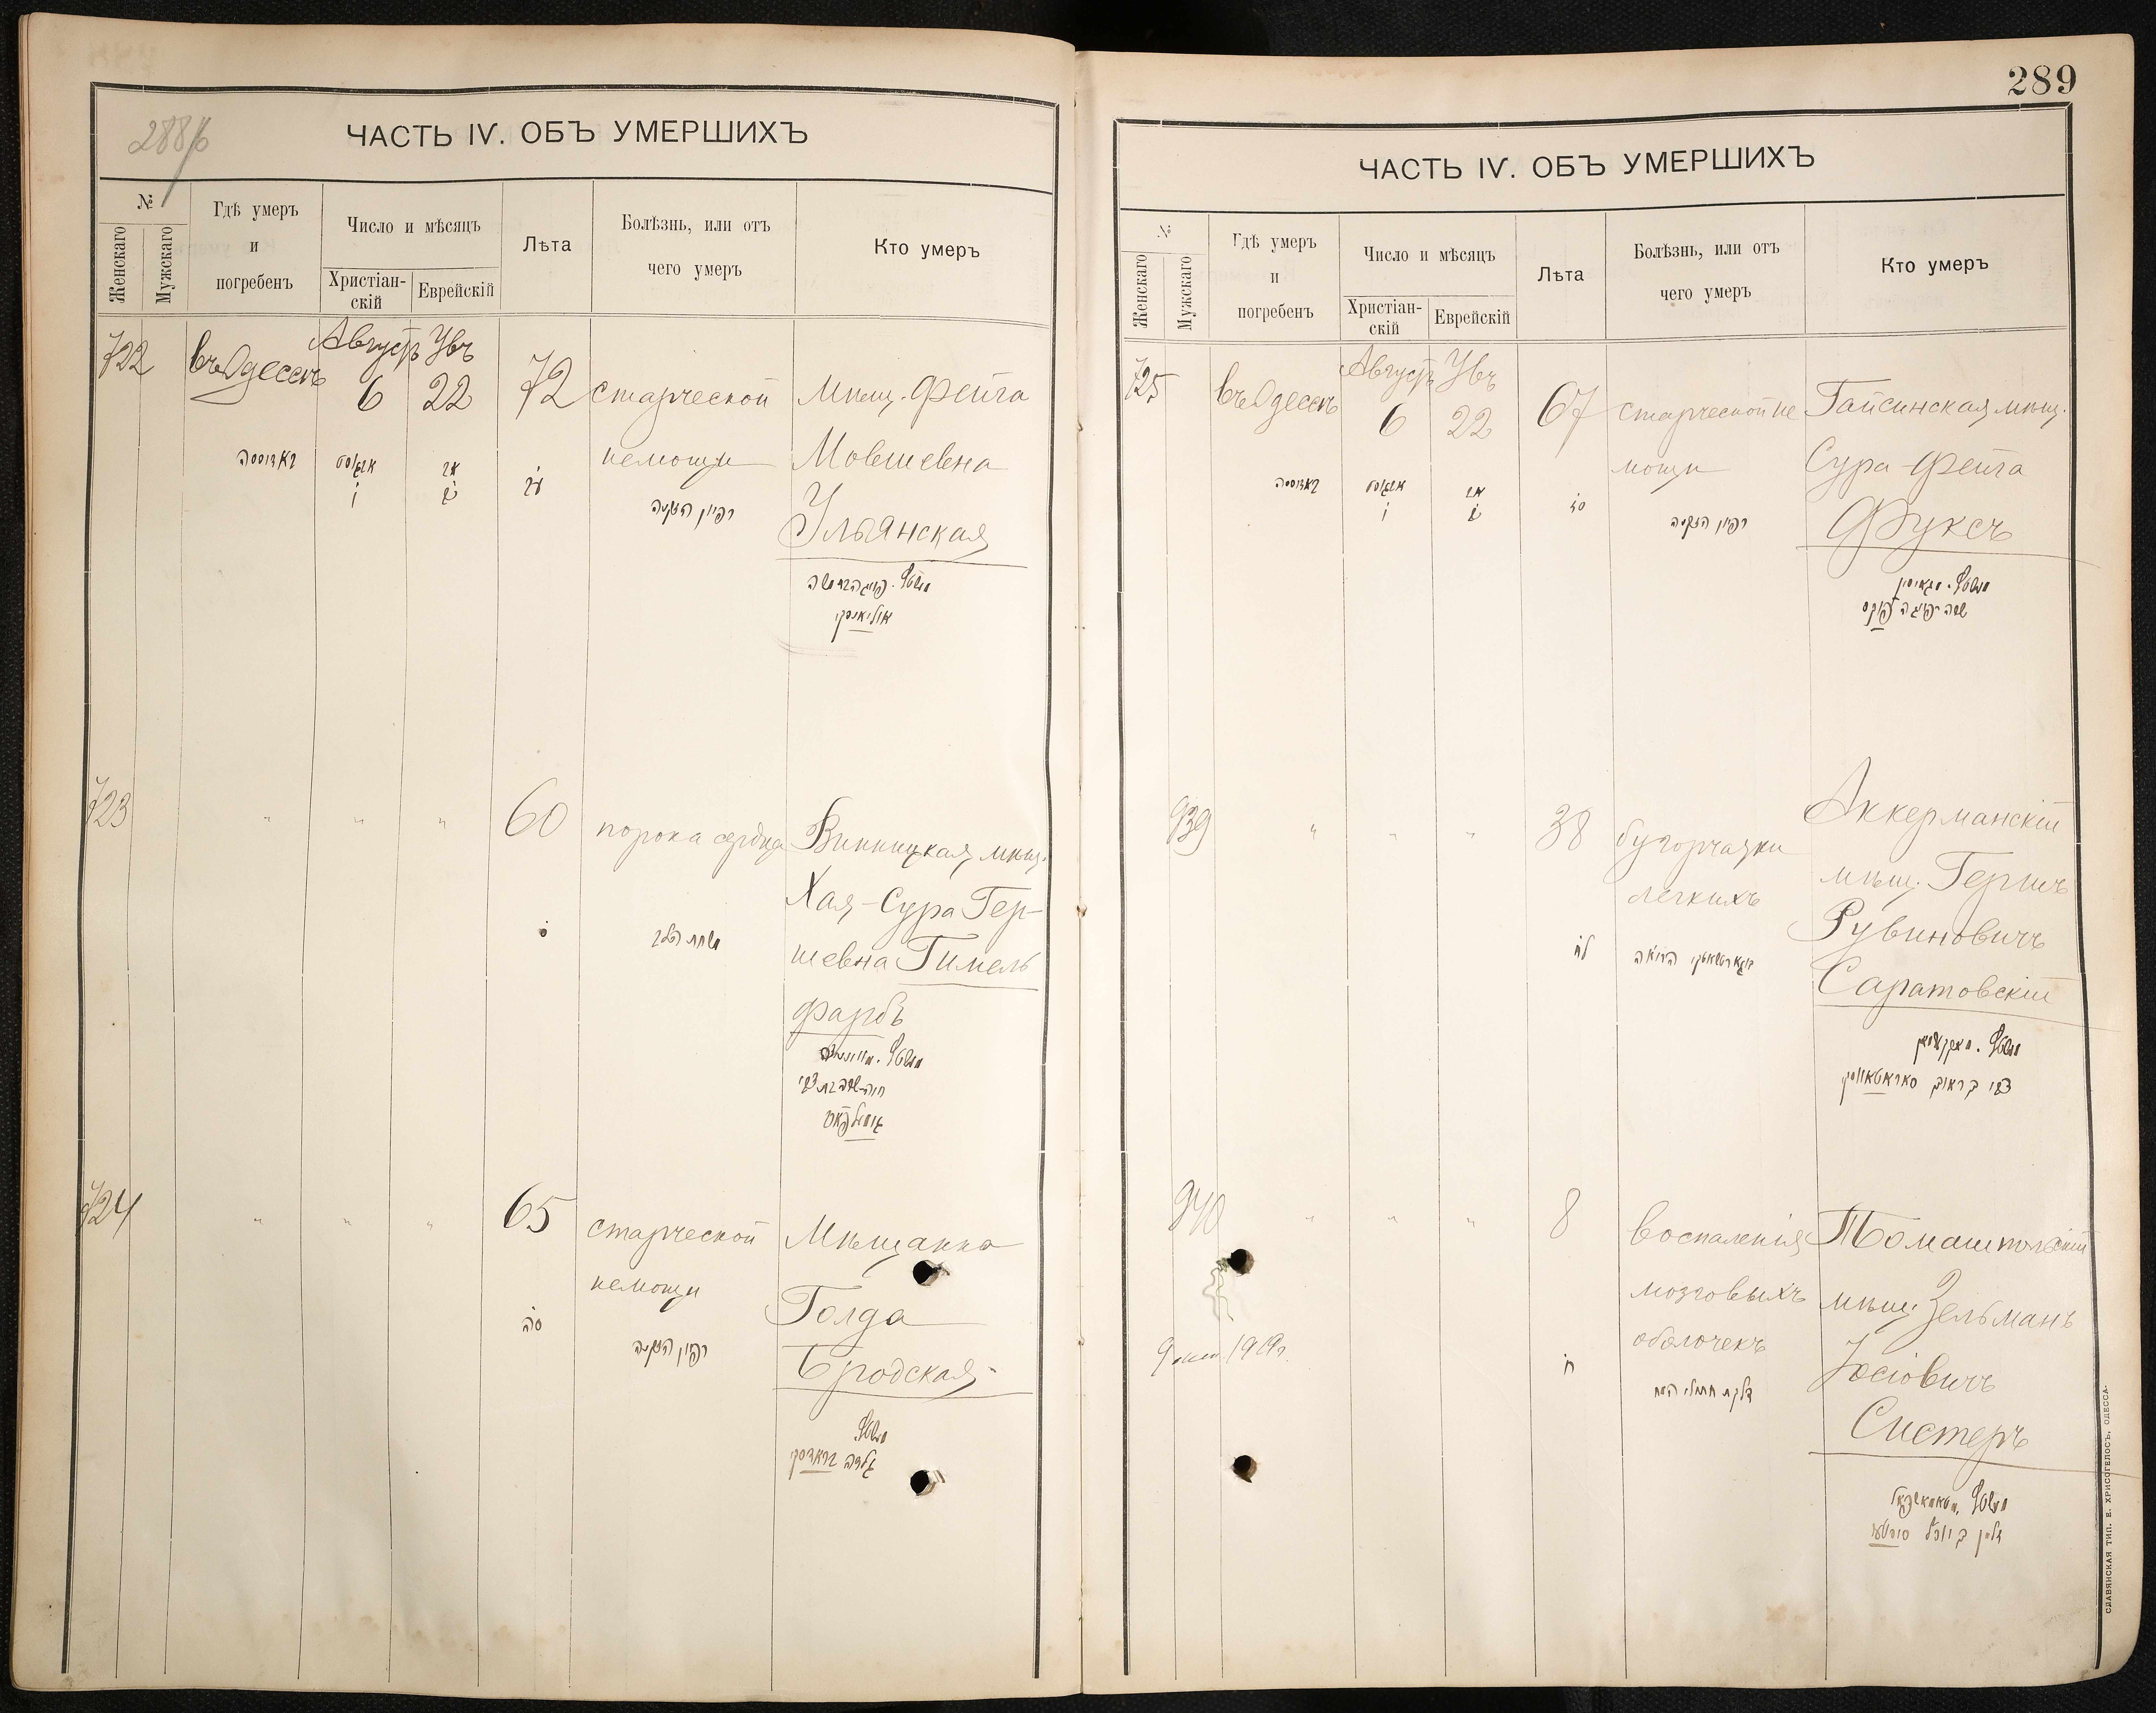 288/б
ЧАСТЬ IV. ОБЪ УМЕРШИХЪ
№
Женскаго
Мужскаго
Гдѣ умеръ
и
погребенъ
Число и мѣсяцъ
Христіан-
скій
Еврейскій
Лѣта
Болѣзнь, или отъ
чего умеръ
Кто умеръ
722
въ Одессѣ
Август Увъ
6
22
72
старческой
немощи
רפיון הזקנה
Мѣщ. Фейга
Мовшевна
Ульянская
באדוססה
אוליאנסקי
723
"
"
"
60
порока сердца
Винницкая мѣщ.
Хая-Сура Гер-
шевна Гимель
фарбъ
724
"
"
"
65
סה
старческой
немощи
רפיון הזקנה
Мѣщанка
Голда
Бродская
גולדה בראדסקי
289
ЧАСТЬ IV. ОБЪ УМЕРШИХЪ
№
Женскаго
Мужскаго
Гдѣ умеръ
и
погребенъ
Число и мѣсяцъ
Христіан-
скій
Еврейскій
Лѣта
Болѣзнь, или отъ
чего умеръ
Кто умеръ
725
въ Одессѣ
Август Увъ
6
22
67
старческой не
мощи
רפיון הזקנה
Гайсинская мѣщ.
Сура-Фейга
Фуксъ
באדוססה
שרה פייגה פוקס
939
"
"
"
38
לח
бугорчатки
легкихъ
Аккерманскій
мѣщ. Гершъ
Рувиновичъ
Саратовскій
צבי ב ראובן סאראטאווסקי
940
"
"
"
8
ח
воспаленія
мозговыхъ
оболочекъ
דלקת חתולי המח
Томашпольскій
мѣщ. Зельманъ
Іосіовичъ
Систеръ
1919г.
СЛАВЯНСКАЯ ТИП. Е. ХРИСОГЕЛОСЪ, ОДЕССА.